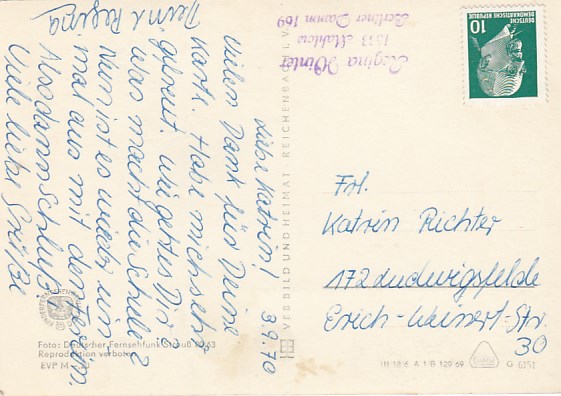 3.9.70
Liebe Katrin!
Vielen Dank für Deine
Karte. Habe mich sehr
gefreut. Wie geht es Dir?
Was macht die Schule?
Nun ist es wieder ein-
mal aus mit den Ferien.
Sodann Schluß!
Viele liebe Grüße
Deine Regina
Regina Winter
1513 Mahlow
Berliner Damm 169
DEUTSCHE
DEMOKRATISCHE REPUBLIK
10
Frl.
Katrin Richter
172 Ludwigsfelde
Erich-Weinert-Str.
30
VEB BILD UND HEIMAT REICHENBACH I. V.
Foto: Deutscher Fernsehfunk
Reproduktion verboten
EVP M
A 1/B 129/69
G 6151